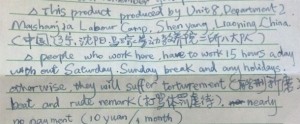 △ This product produced by Unit 8, Department 2
Masanjia Labour Camp, Shen yang Liaoning, China
(中国 辽宁, 沈阳 马三家劳动教养院二所八大队)
△ people who work here, have to work 15 hours a day
with out Saturday, Sunday break and any holidays.
otherwise, they will suffer torturement (酷刑折磨)
beat and rude remark (打骂体罚虐待). nearly
no payment (10 yuan / 1 month)